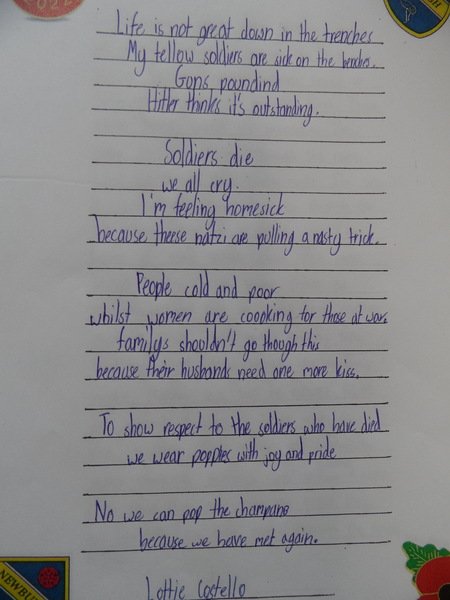 Life is not great down in the trenches
My fellow soldiers are sick on the benches.
Guns poundind
Hitler thinks it's outstanding.
Soldiers die
we all cry.
I'm feeling homesick
because theese natzi are pulling a nasty trick.
People cold and poor
whilst women are coooking for those at war.
familys shouldn't go though this
because their husbands need one more kiss.
To show respect to the soldiers who have died
we wear popples with joy and pride
No we can pop the champane
because we have met again.
Lottie Costello
NEWBU